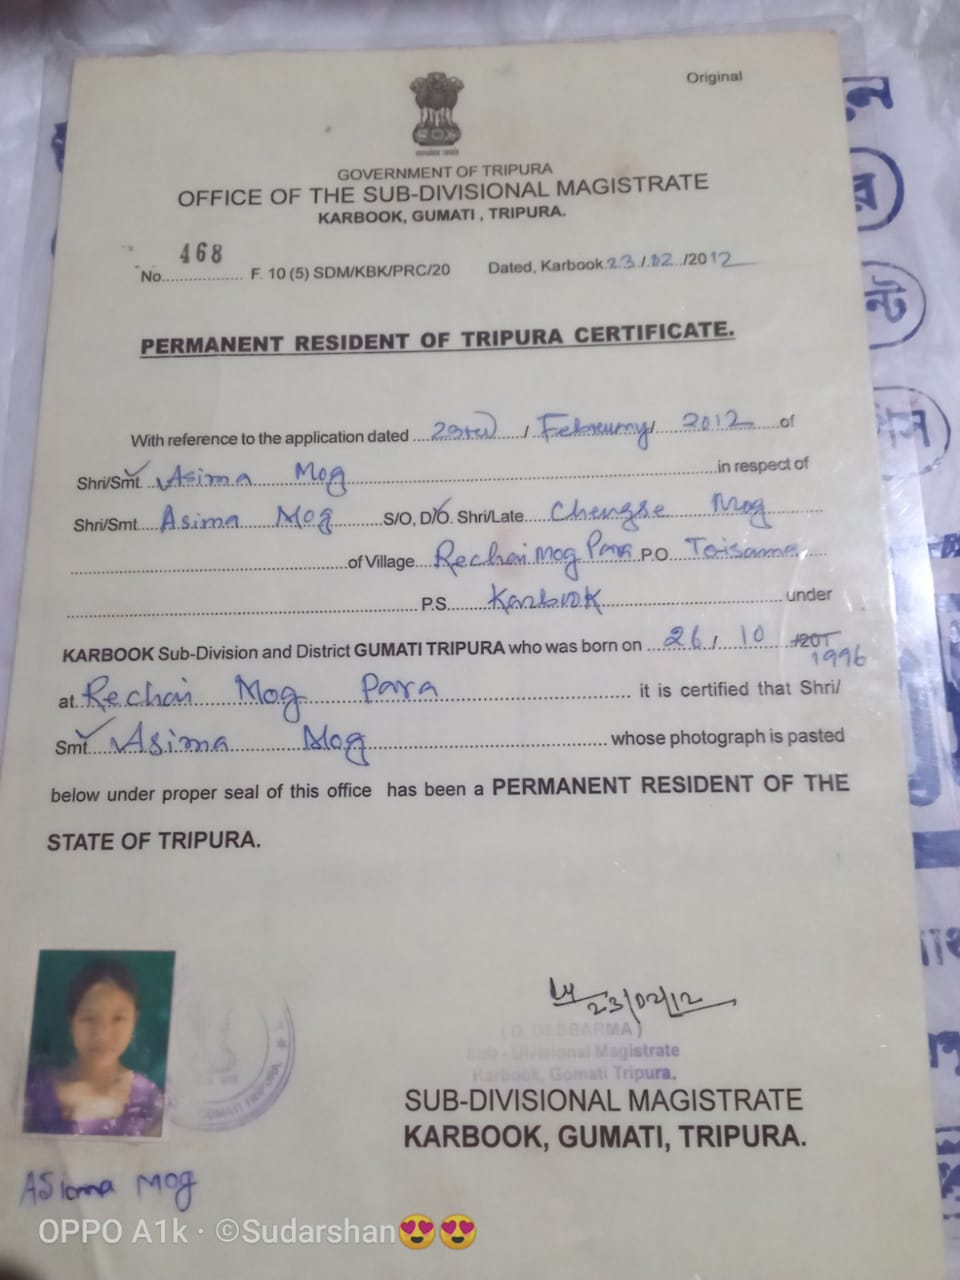 Original
GOVERNMENT OF TRIPURA
OFFICE OF THE SUB-DIVISIONAL MAGISTRATE
KARBOOK, GUMATI , TRIPURA.
No. 468 F. 10 (5) SDM/KBK/PRC/20 Dated, Karbook 23/02/2012
PERMANENT RESIDENT OF TRIPURA CERTIFICATE.
With reference to the application dated 23rd / February / 2012 of
Shri/Smt. Asima Mog in respect of
Shri/Smt. Asima Mog S/O, D/O. Shri/Late. Chengse Mog
of Village. Rechai Mog Para P.O. Toisama
P.S. Karbook under
KARBOOK Sub-Division and District GUMATI TRIPURA who was born on 26/ 10 /201
1996
at Rechai Mog Para it is certified that Shri/
Smt. Asima Mog whose photograph is pasted
below under proper seal of this office has been a PERMANENT RESIDENT OF THE
STATE OF TRIPURA.
23/02/12
(D. DEBBARMA)
Sub - Divisional Magistrate
Karbook, Gomati Tripura.
SUB-DIVISIONAL MAGISTRATE
KARBOOK, GUMATI, TRIPURA.
GOMATI TRIPURA
Mog
OPPO A1k · ©Sudarshan😍😍